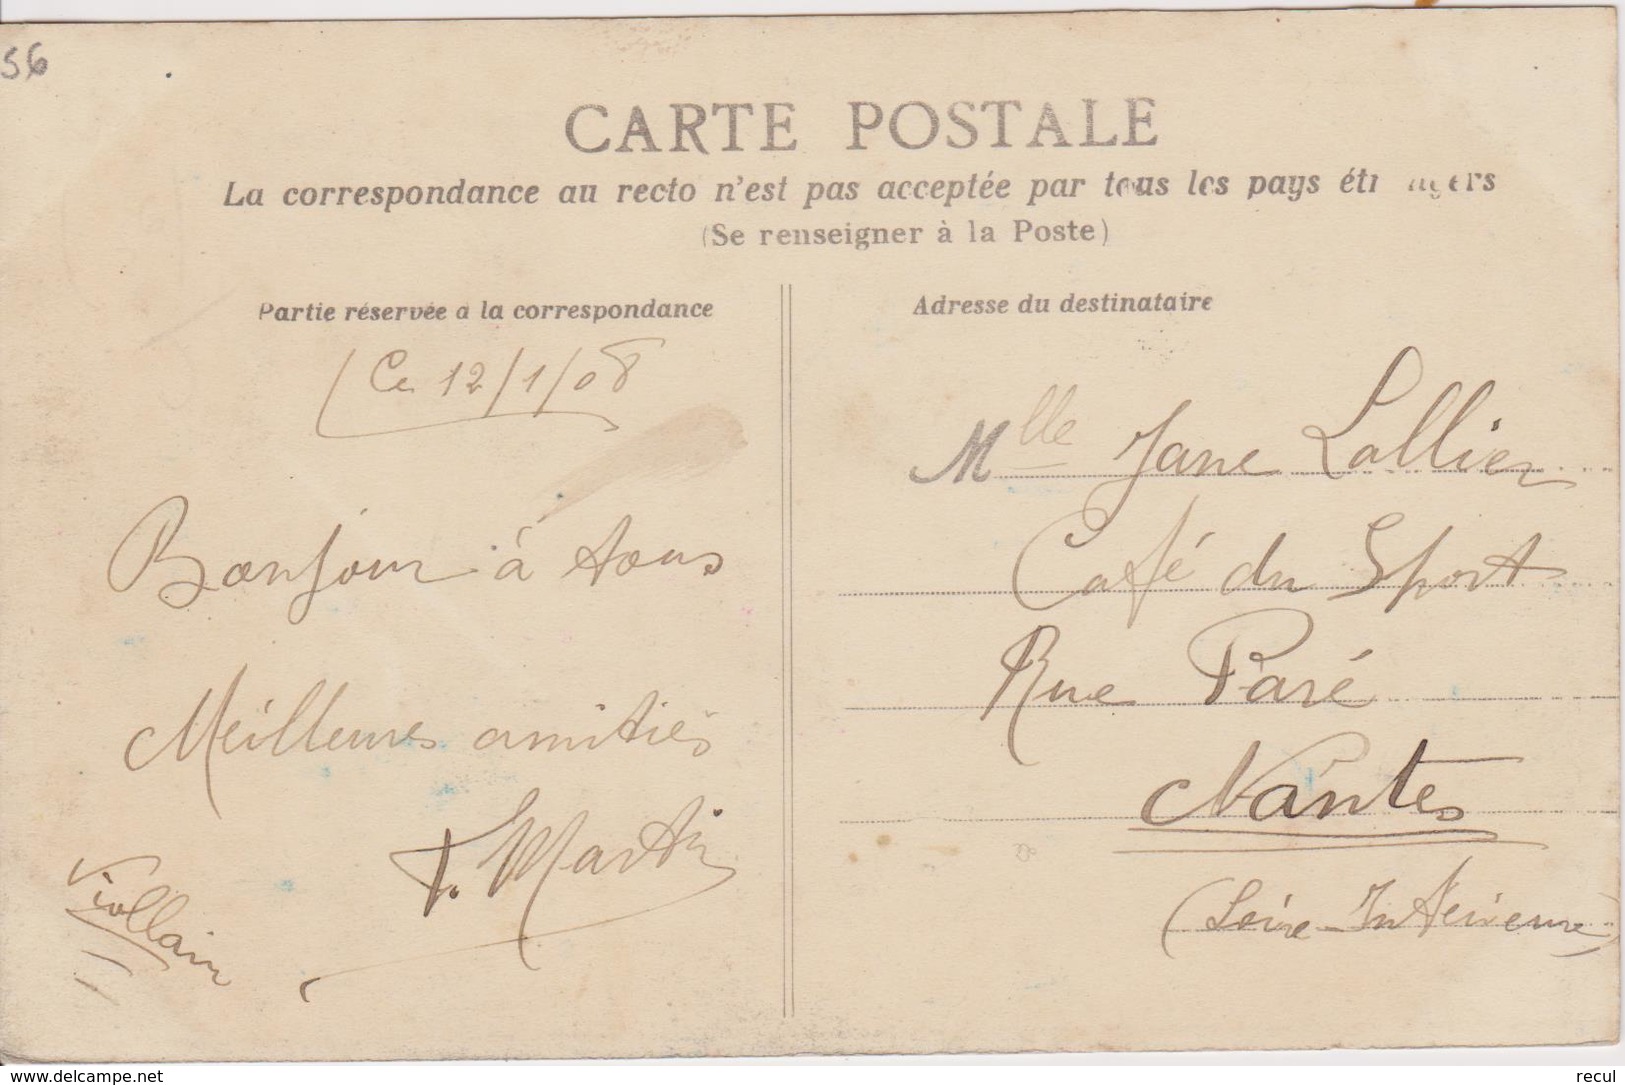 56
CARTE POSTALE
La correspondance au recto n'est pas acceptée par tous les pays étrangers
(Se renseigner à la Poste)
Partie réservée à la correspondance
Ce 12/1/08
Bonjour à tous
Meilleures amitiés
F. Martin
Viollain
Adresse du destinataire
Mlle Jane Lallier
Café du Sport
Rue Paré
Nantes
(Loire-Inférieure)
www.delcampe.net
recul